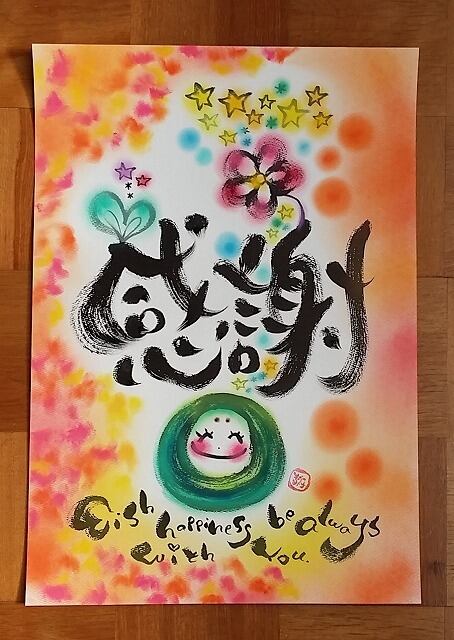 感謝
Wish happiness be always
with you.